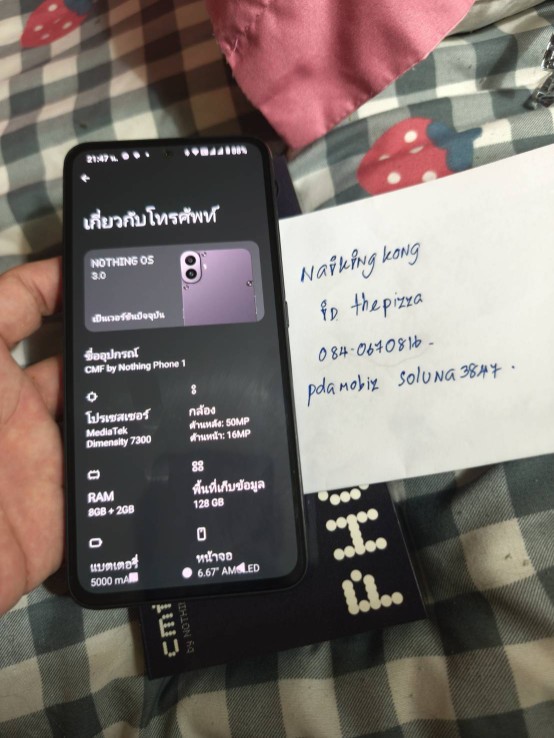 21:47 น.
เกี่ยวกับโทรศัพท์
NOTHING OS
3.0
เป็นเวอร์ชันปัจจุบัน
ชื่ออุปกรณ์
CMF by Nothing Phone 1
โปรเซสเซอร์
MediaTek
Dimensity 7300
กล้อง
ด้านหลัง: 50MP
ด้านหน้า: 16MP
RAM
8GB + 2GB
พื้นที่เก็บข้อมูล
128 GB
แบตเตอรี่
5000 mA
หน้าจอ
6.67" AMOLED
Naiking kong
iD thepizza
084-0670816-
pdamobiz SOLUNA3847.
cmf
by NOTHI